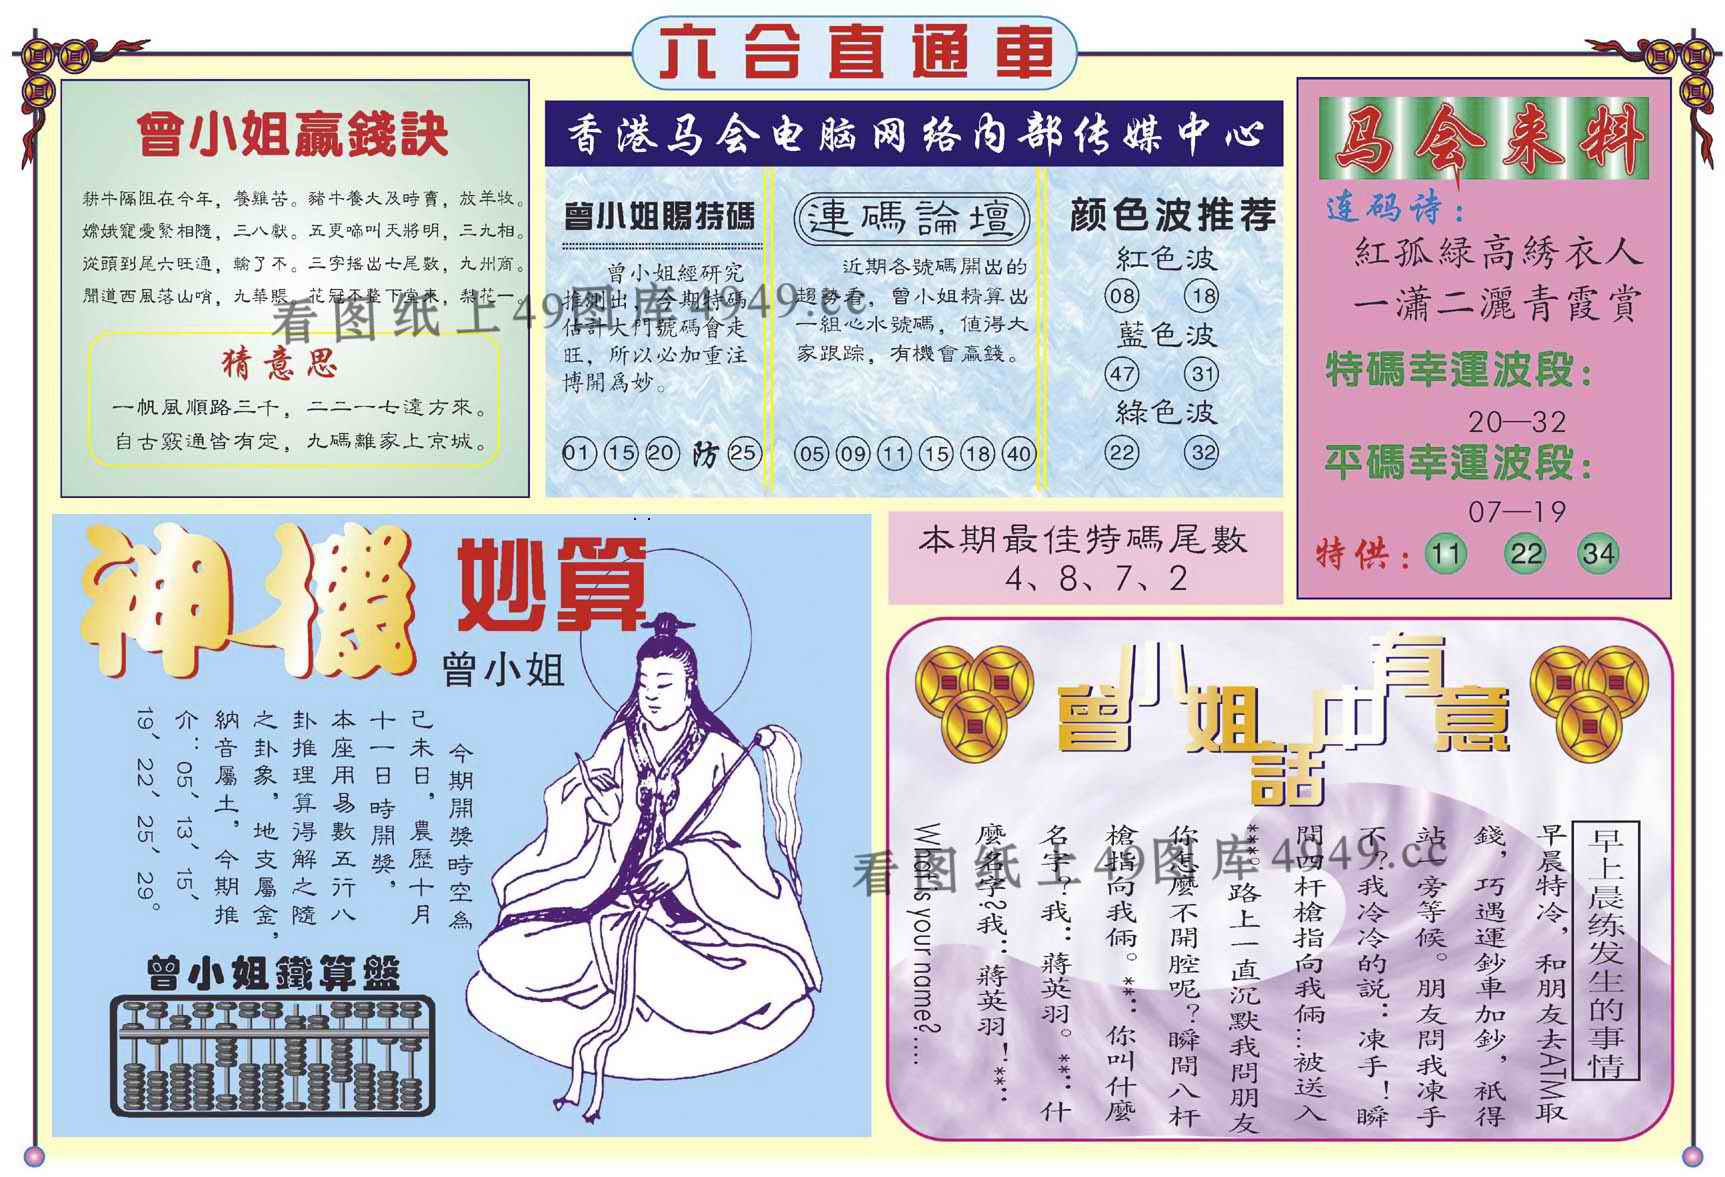 六合直通車
曾小姐贏錢訣
耕牛隔阻在今年，養雞苦。豬牛養大及時賣，放羊牧。
嫦娥寵愛緊相隨，三八獻。五更啼叫天將明，三九相。
從頭到尾六旺通，輸了不。三字搖出七尾數，九州商。
開道西風落山哨，九華賬。花冠不整下堂來，梨花一
猜意思
一帆風順路三千，二二一七遠方來。
自古竅通皆有定，九碼離家上京城。
香港马会电脑网络内部传媒中心
曾小姐賜特碼
曾小姐經研究
推測出，今期特碼
估計大門號碼會走
旺，所以必加重注
博開爲妙。
01 15 20 防 25
連碼論壇
近期各號碼開出的
趨勢看，曾小姐精算出
一組心水號碼，值得大
家跟踪，有機會贏錢。
05 09 11 15 18 40
颜色波推荐
紅色波
08 18
藍色波
47 31
綠色波
22 32
马会来料
连码诗：
紅孤緑高綉衣人
一瀟二灑青霞賞
特碼幸運波段：
20—32
平碼幸運波段：
07—19
特供：11 22 34
本期最佳特碼尾數
4、8、7、2
神機妙算
曾小姐
今期開獎時空為
己未日，農歷十月
十一日時開獎，
本座用易數五行八
卦推理算得解之隨
之卦象，地支屬金，
納音屬土，今期推
介：05、13、15、
19、22、25、29。
曾小姐鐵算盤
曾小姐話中有意
早上晨练发生的事情
早晨特冷，和朋友去ATM取
錢，巧遇運鈔車加鈔，衹得
站一旁等候。朋友問我凍手
不？我冷冷的説：凍手！瞬
間四杆槍指向我倆…被送入
***。路上一直沉默我問朋友
你怎麼不開腔呢？瞬間八杆
槍指向我倆。**：你叫什麼
名字？我：蔣英羽。**：什
麼名字？我：蔣英羽！**：
What is your name?....
看图纸上49图库4949.cc
看图纸上49图库4949.cc